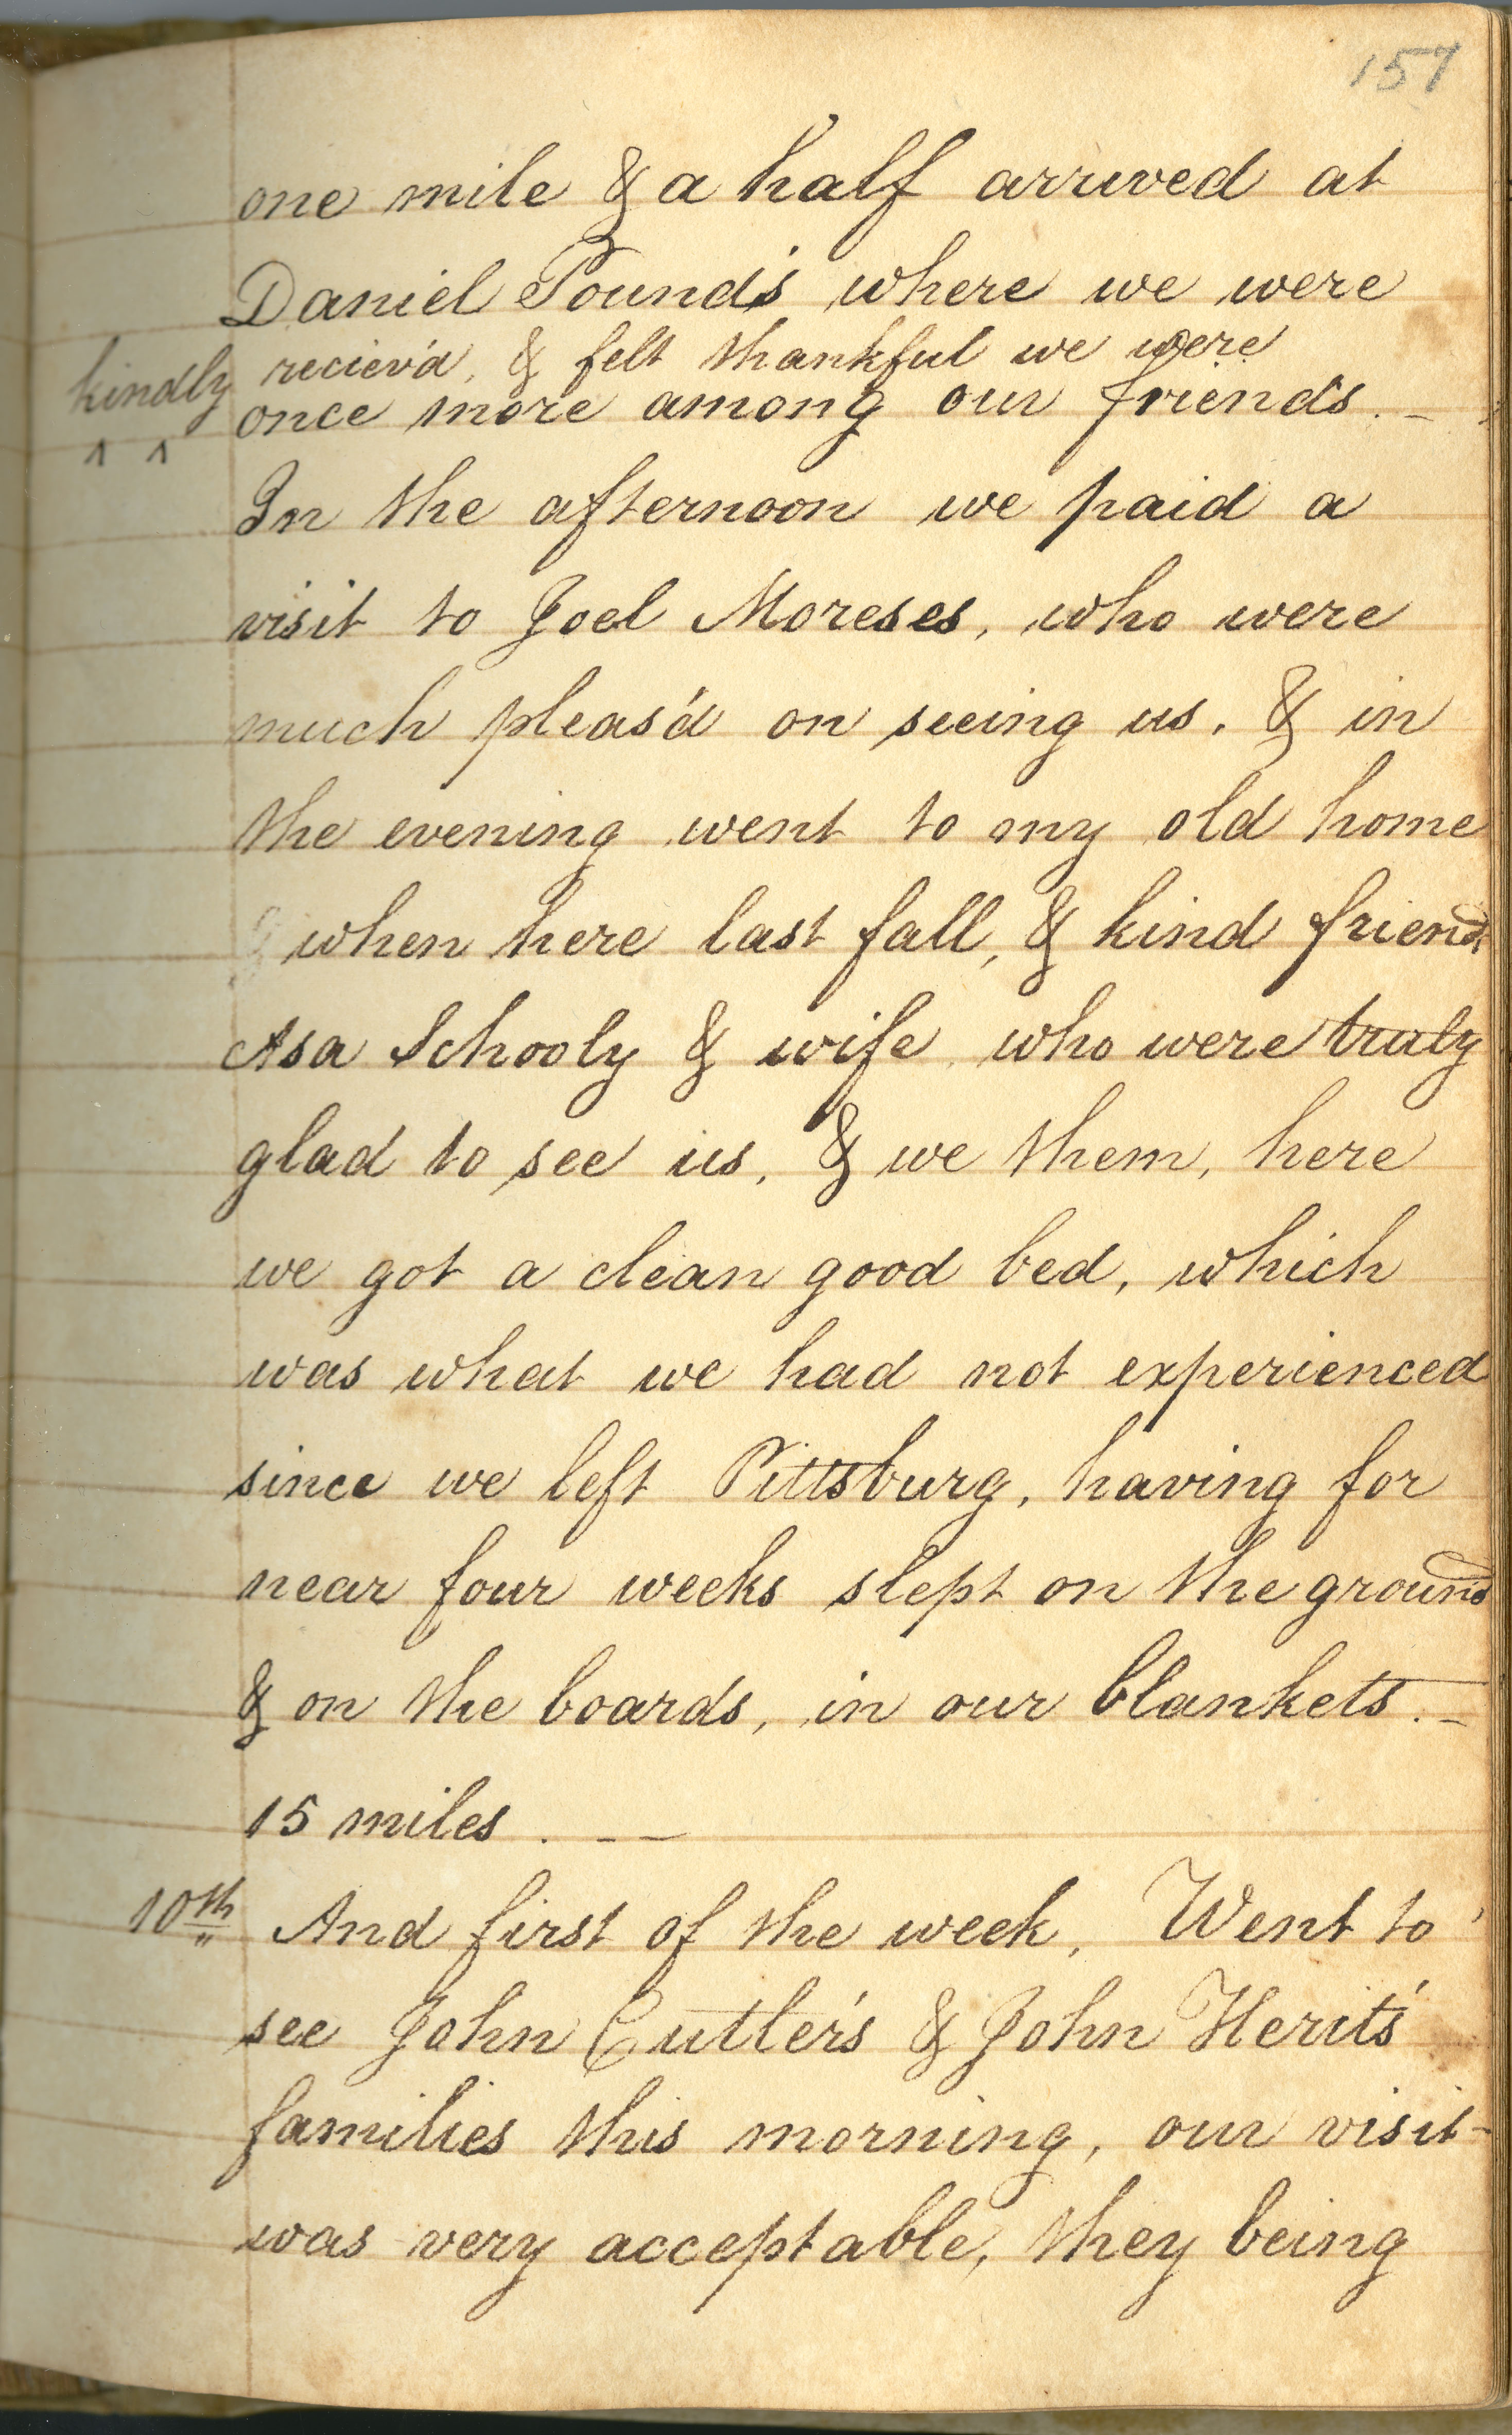 157
one mile & a half arrived at
Daniel Pound's where we were
kindly reciev'd, & felt thankful we were
once more among our friends. –
In the afternoon we paid a
visit to Joel Moreses, who were
much pleas'd on seeing us, & in
the evening went to my old home
when here last fall, & kind friend
Asa Schooly & wife, who were truly
glad to see us, & we them, here
we got a clean good bed, which
was what we had not experienced
since we left Pittsburg, having for
near four weeks slept on the ground
& on the boards, in our blankets. –
15 miles. – –
10th And first of the week, Went to
see John Cutler's & John Herit's
families this morning, our visit
was very acceptable, they being